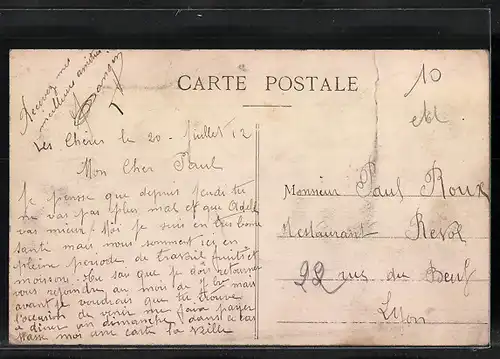 Recevez mes
meilleures amitiés
CARTE POSTALE
10
Les Chères le 20 Juillet 12
Mon Cher Paul
Je pense que depuis jeudi tu
ne vas pas plus mal et que
vas mieux. Moi je suis en très bonne
santé mais nous sommes ici en
pleine periode de travail fruits et
moisson. Tu sau que je dois retourner
vous rejondre au mois de 7bre mais
avant je voudrais que tu trouve
l'occasion de venir me faire payer
a diner un dimanche dans ce cas
passe moi une carte la veille
Monsieur Paul Roux
Restaurant Revol
22 rue du Beuf
Lyon